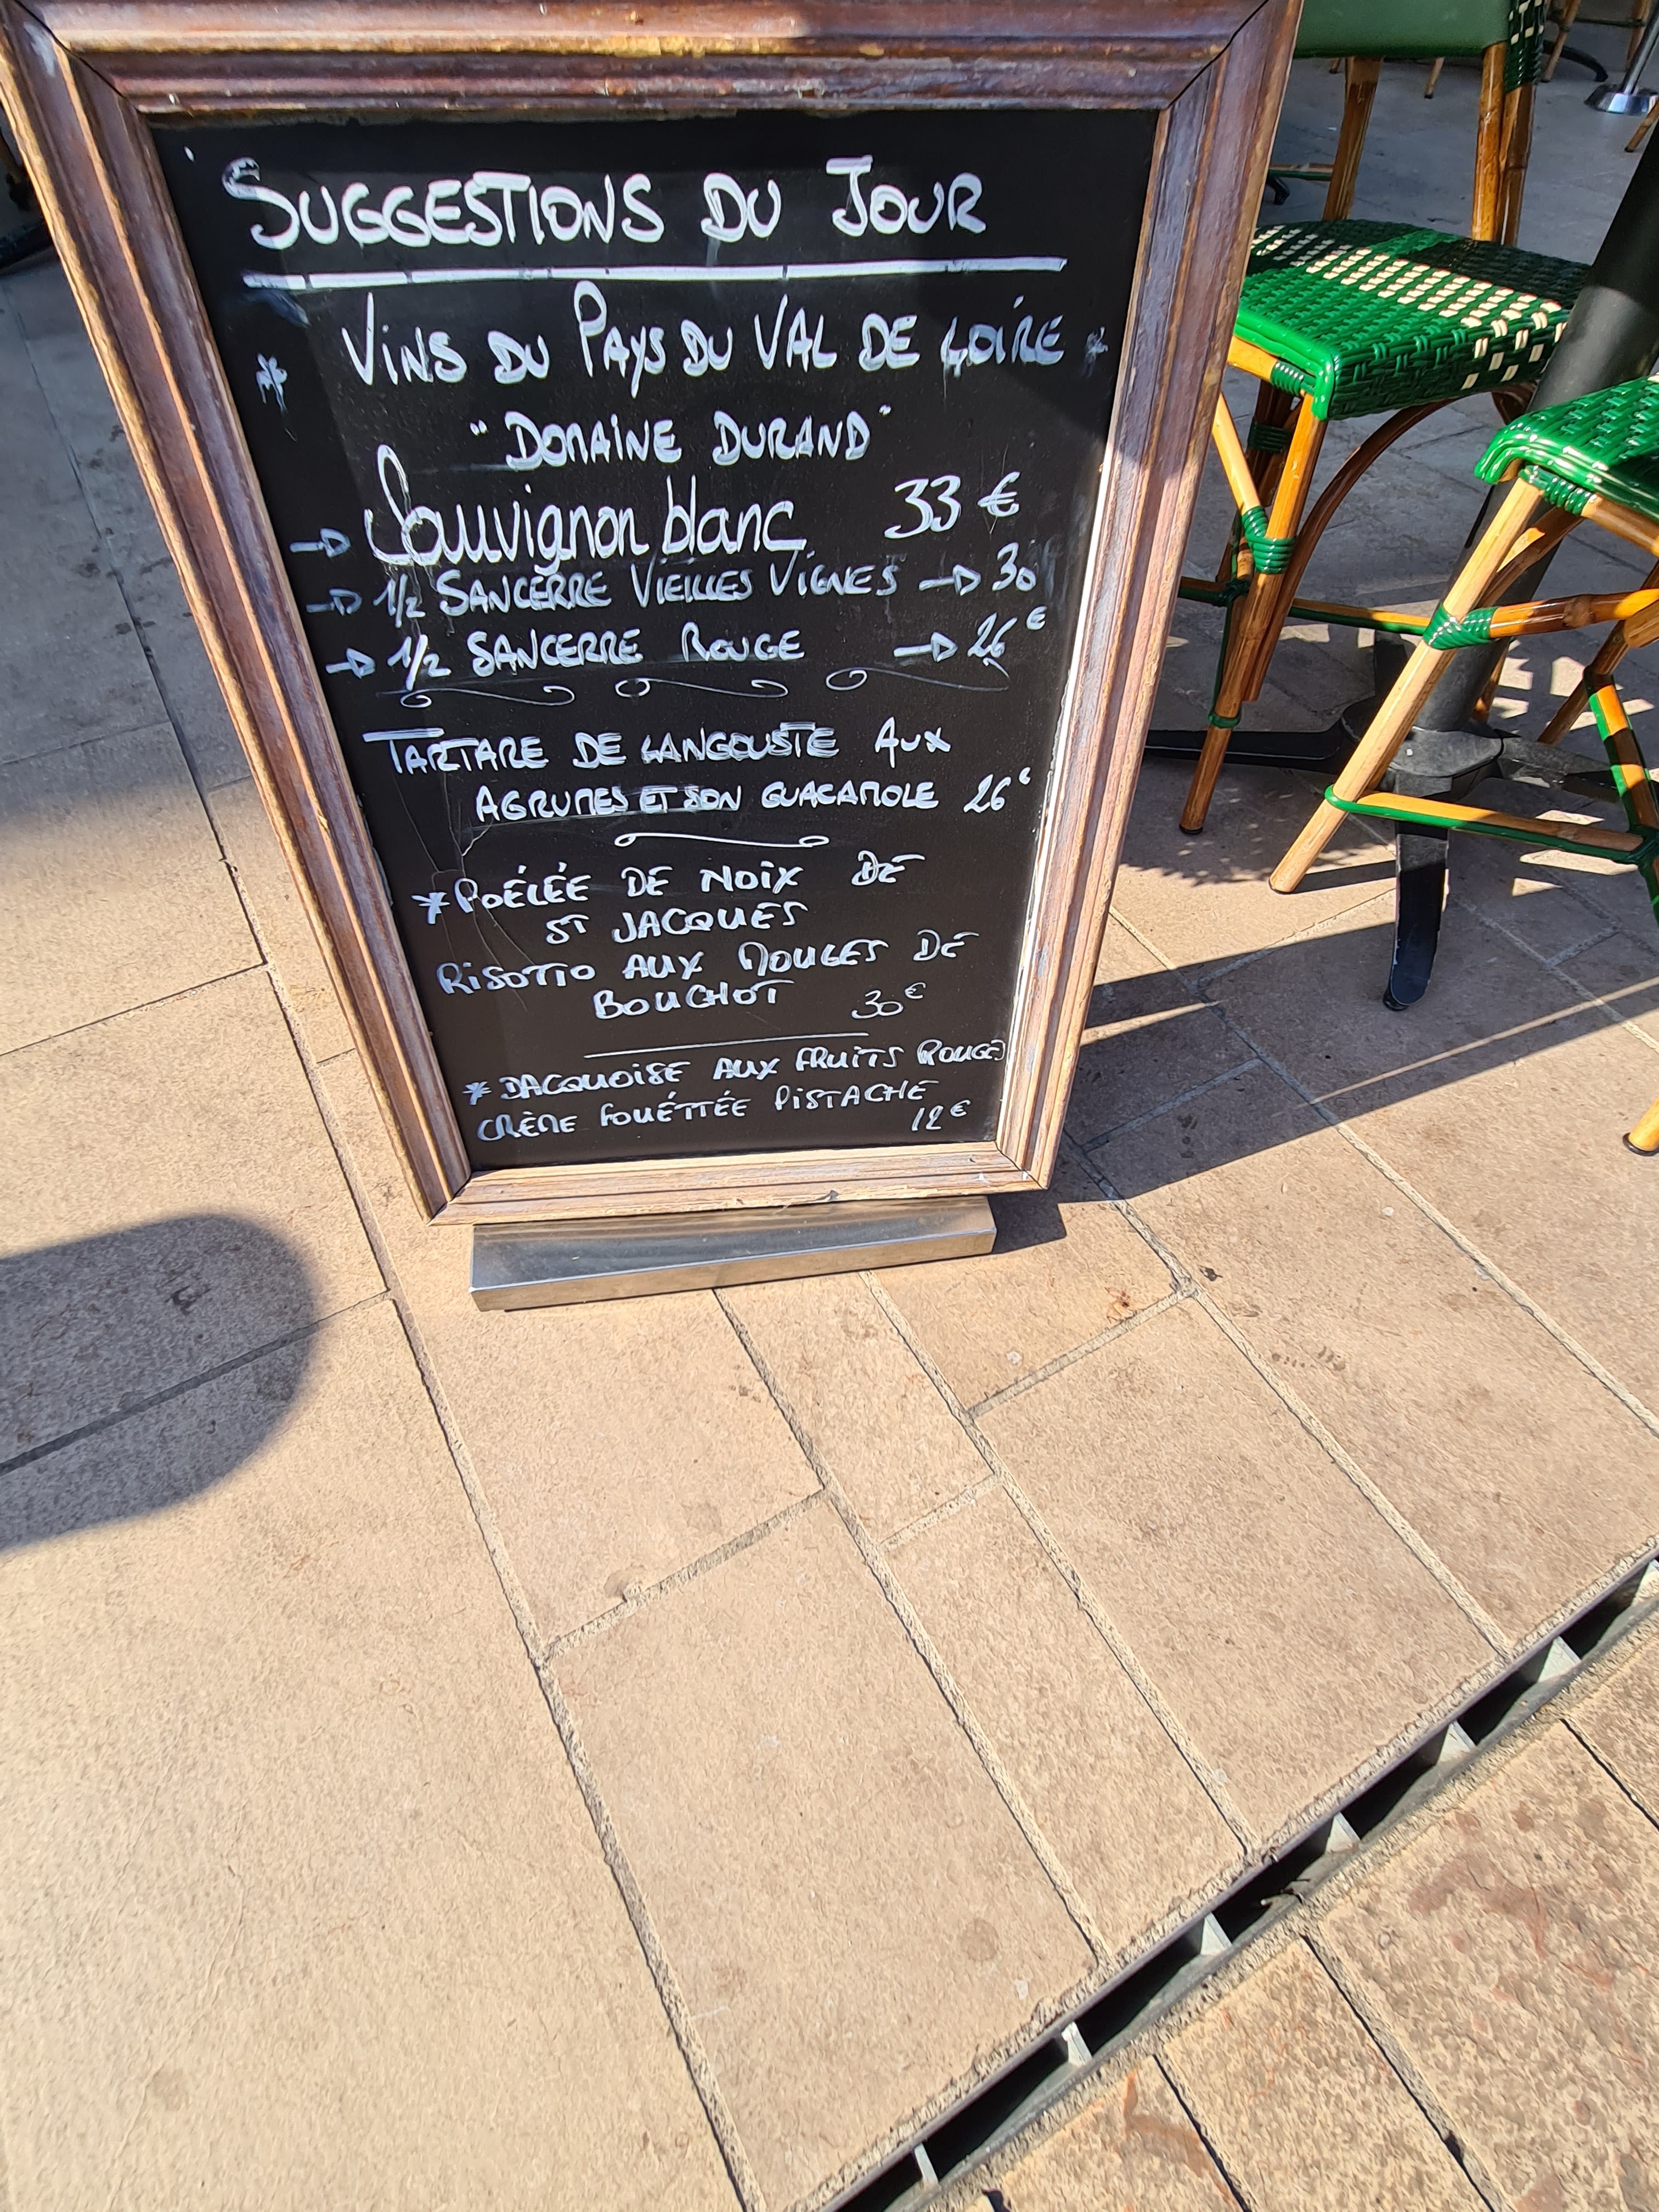 SUGGESTIONS DU JOUR
* VINS DU PAYS DU VAL DE LOIRE *
"DOMAINE DURAND"
→ Sauvignon blanc 33 €
→ 1/2 SANCERRE VIEILLES VIGNES → 30
→ 1/2 SANCERRE ROUGE → 26 €
TARTARE DE LANGOUSTE AUX
AGRUMES ET SON GUACAMOLE 26€
*POÉLÉE DE NOIX DE
ST JACQUES
RISOTTO AUX MOULES DE
BOUCHOT 30€
* DACQUOISE AUX FRUITS ROUGES
CRÈME FOUÉTTÉE PISTACHE
12€